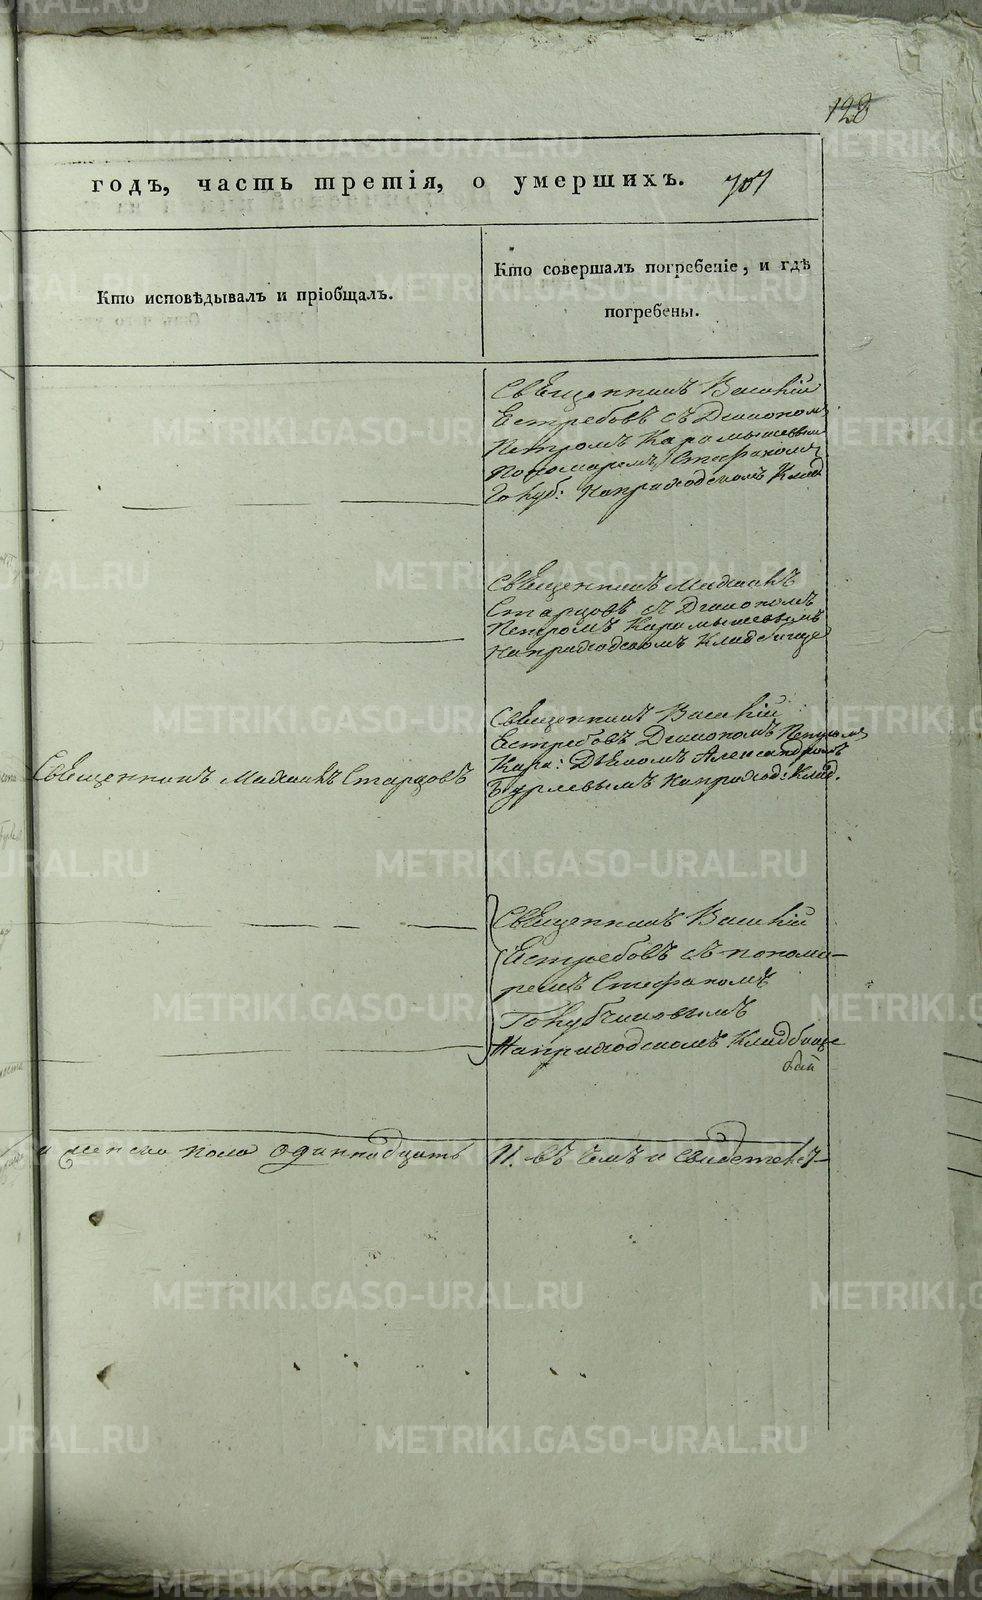 128
годъ, часть третія, о умершихъ. 707
Кто исповѣдывалъ и пріобщалъ.
Кто совершалъ погребеніе, и гдѣ
погребены.
Священникъ Василій
Ястребовъ съ Діакономъ
Петромъ Карамышевым
Пономаремъ Стефаномъ
Голуб: Наприходскомъ Клад
Священникъ Михаилъ
Старцовъ с Діакономъ
Петромъ Карамышевымъ
Наприходскомъ Кладбище
Священникъ Михаилъ Старцовъ
Священникъ Василій
Ястребовъ Діакономъ Петромъ
Кара: Дьякомъ Александромъ
Бурлевымъ Наприход: Клад.
Священникъ Василій
Ястребовъ съ понома-
ремъ Стефаномъ
Голубчиковымъ
Наприходскомъ Кладбище
и женска пола одиннадцать
11. въ чемъ и свидетель-
METRIKI.GASO-URAL.RU